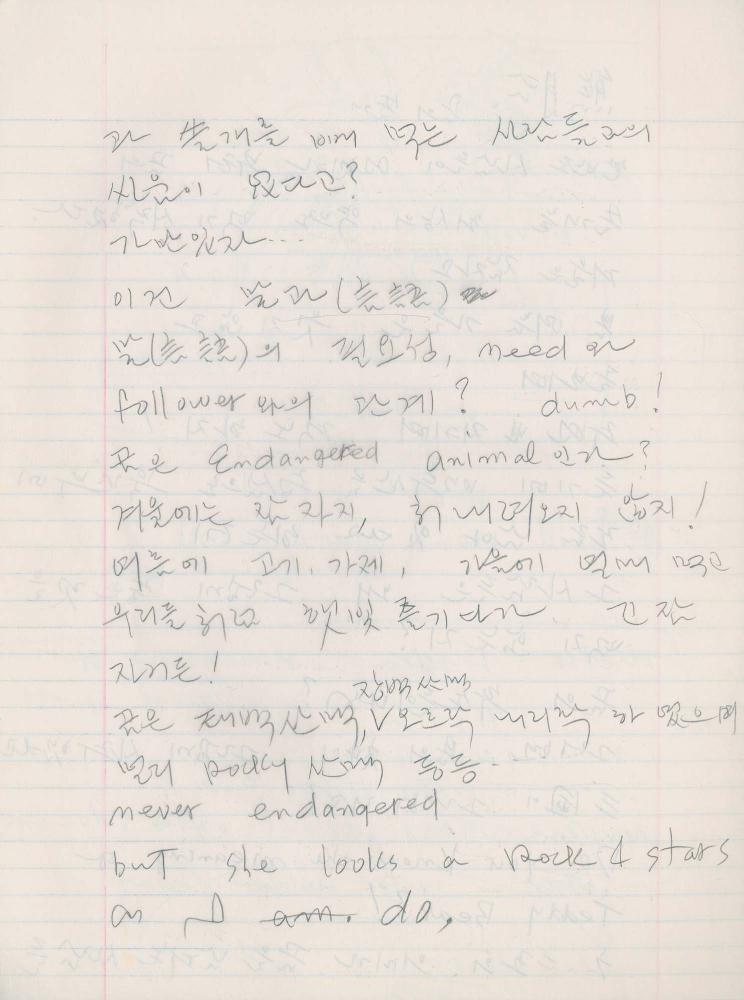 과 쓸개를 빼 먹는 사람들과의
싸움이 였다고?
가만있자...
이건 말과(言語)
말(言語)의 필요성, need 와
follower 와의 관계? dumb!
곰은 Endangered animal 인가?
겨울에는 잠자지, 휘 내려오지 않지!
여름에 고기, 가제, 가을에 열매 먹고
우리를 휘고 햇빛 즐기다가 긴 잠
자거든!
곰은 태백산맥, 장백산맥 오르락 내리락 하 였으며
멀리 Rocky 산맥 등등.
never endangered
but she looks a Rock & stars
as I do,